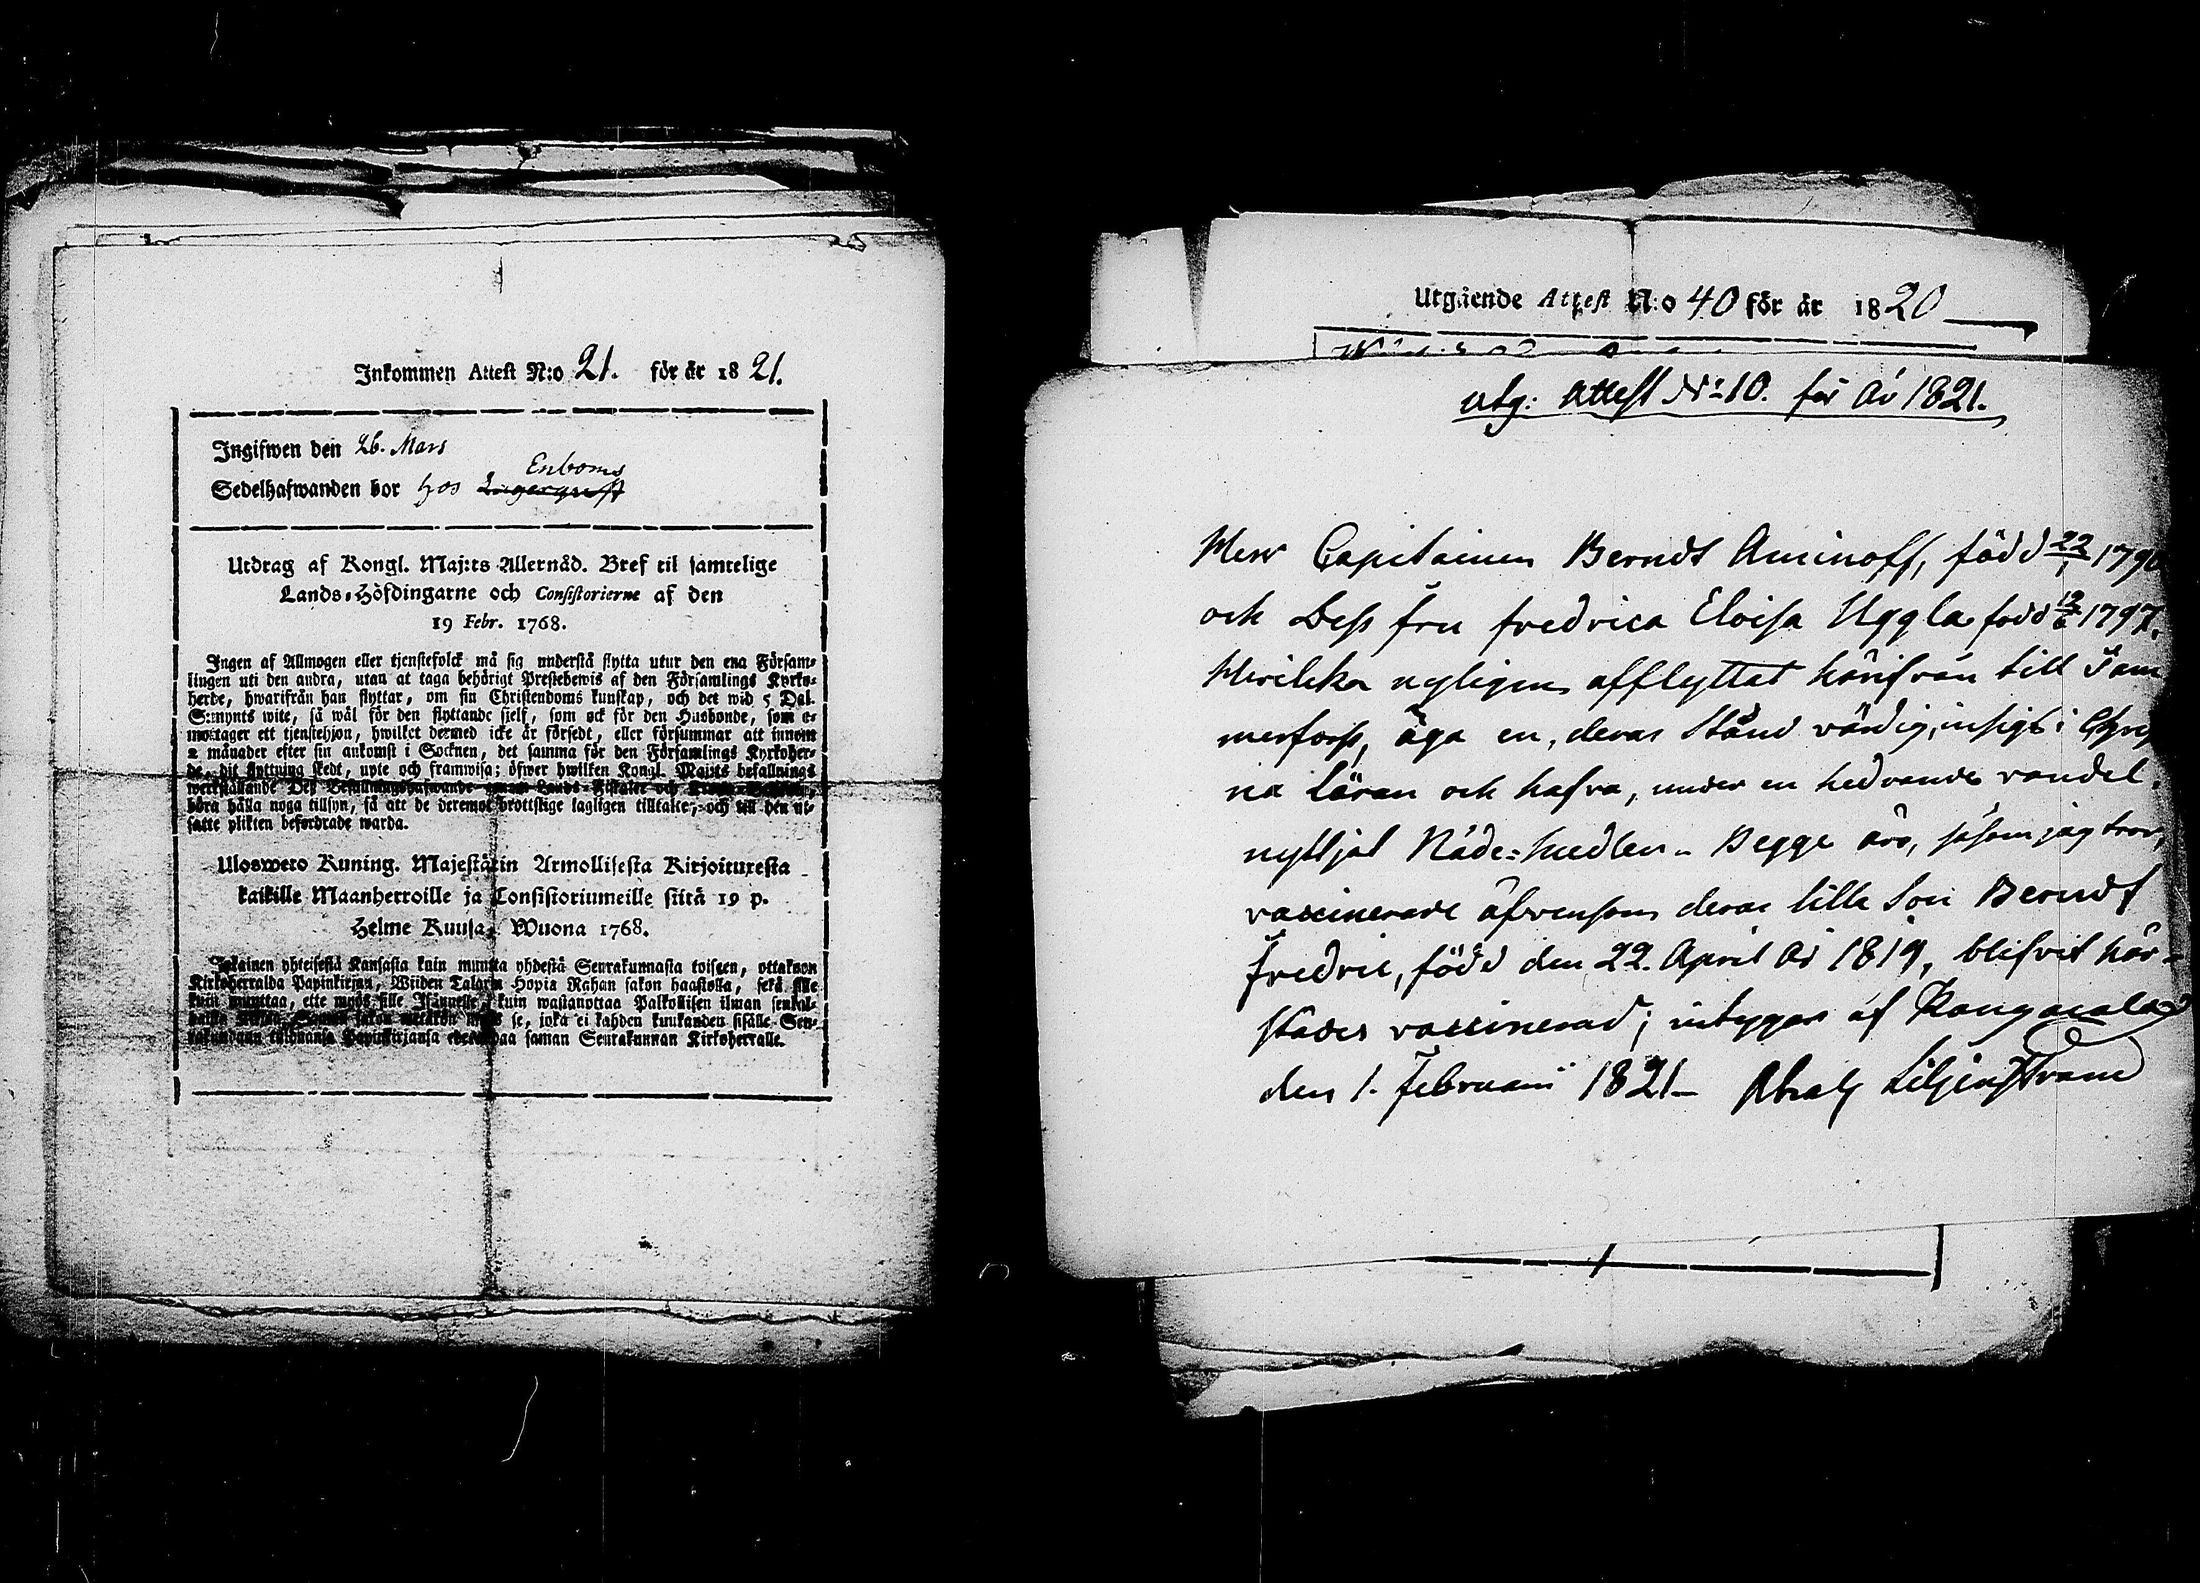 Inkommen Attest N:o 21. för år 1821.
Ingifwen den 26. Mars
Enboms
Sedelhafwanden bor hos Lagerqvist
Utdrag af Kongl. Maj:ts Allernåd. Bref til samtelige
Lands-Höfdingarne och Consistorierne af den
19 Febr. 1768.
Ingen af Allmogen eller tjenstefolck må sig understå flytta utur den ena Försam-
lingen uti den andra, utan at taga behörigt Prestebewis af den Församlings Kyrko-
herde, hwarifrån han flyttar, om sin Christendoms kunskap, och det wid 5 Dal.
S:mynts wite, så wäl för den flyttande sielf, som ock för den Husbonde, som e-
mottager ett tjenstehjon, hwilket dermed icke är försedt, eller försummar att innom
2 månader efter sin ankomst i Socknen, det samma för den Församlings Kyrkoher-
de, dit flyttning skedt, upte och framwisa; öfwer hwilken Kongl. Maj:ts befallnings
werkställande Deß Befallningshafwande genom Lands-Fiskaler och
böra hålla noga tillsyn, så att de deremot brottslige lagligen tilltalte, och till den ut-
satte plikten befordrade warda.
Ulosweto Kuning. Majestätin Armollisesta Kirjoituxesta
kaikille Maanherroille ja Consistoriumeille siitä 19 p.
Helme Kuusa. Wuona 1768.
Jokainen yhteisestä Kansasta kuin muutta yhdestä Seurakunnasta toiseen, ottakoon
Kirkoherralda Papinkirjan, Wiiden Talarin Hopia Rahan sakon haastolla, sekä sille
kuin muuttaa, ette myös sille Isännelle, kuin wastanottaa Palkollisen ilman senkal-
se, joka ei kahden kuukauden sisälle Seu-
Papinkirjansa saman Seurakunnan Kirkoherralle.
Utgående Attest N:o 40 för år 1820
utg: attest No 10. för år 1821.
Herr Capitainen Berndt Aminoff, född 22/1 179
och Dess fru Fredrica Eloisa Uggla född 1797.
Hvilcka nyligen afflyttat härifrån till Tam
merforss, äga en, deras Stånd värdig, insigt i Chris
na Läran och hafva, under en hedrande vandel,
nyttjat Nåde-medlen. Begge äro, såsom jag tror,
vaccinerade äfvensom deras lille Son Berndt
Fredric, född den 22. April år 1819, blifvit här-
städes vaccinerad; intygar af Kangasala
den 1. Februarii 1821 Abrah Liljenstrand